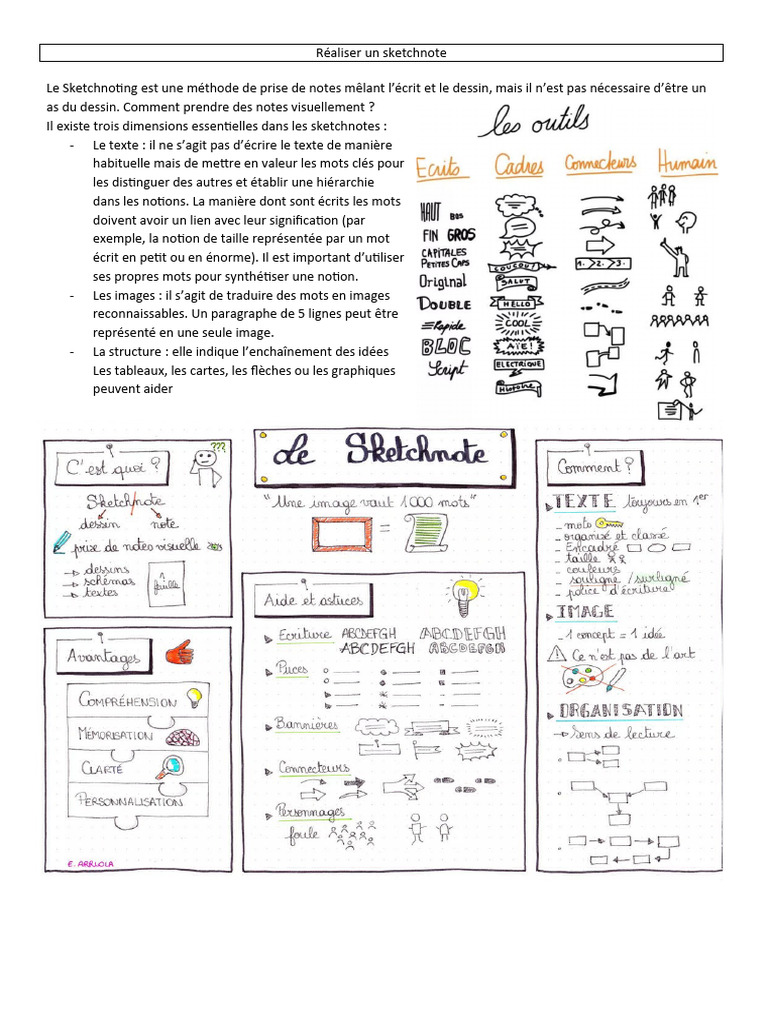 Réaliser un sketchnote
Le Sketchnoting est une méthode de prise de notes mêlant l’écrit et le dessin, mais il n’est pas nécessaire d’être un
as du dessin. Comment prendre des notes visuellement ?
Il existe trois dimensions essentielles dans les sketchnotes :
- Le texte : il ne s’agit pas d’écrire le texte de manière
habituelle mais de mettre en valeur les mots clés pour
les distinguer des autres et établir une hiérarchie
dans les notions. La manière dont sont écrits les mots
doivent avoir un lien avec leur signification (par
exemple, la notion de taille représentée par un mot
écrit en petit ou en énorme). Il est important d’utiliser
ses propres mots pour synthétiser une notion.
- Les images : il s’agit de traduire des mots en images
reconnaissables. Un paragraphe de 5 lignes peut être
représenté en une seule image.
- La structure : elle indique l’enchaînement des idées
Les tableaux, les cartes, les flèches ou les graphiques
peuvent aider
les outils
Ecrits
HAUT BAS
FIN GROS
CAPITALES
PETITES CAPS
Original
DOUBLE
Rapide
BLOC
Script
Cadres
COUCOU!
SALUT
HELLO
COOL
AÏE!
ELECTRIQUE
Histoire
Connecteurs
1.>2.>3.
Humain
C'est quoi ?
???
Sketch/note
dessin note
prise de notes visuelle
→ dessins
→ schémas
→ textes
1
feuille
Avantages
COMPRÉHENSION
MÉMORISATION
CLARTÉ
PERSONNALISATION
E. ARRIOLA
Le Sketchnote
"Une image vaut 1000 mots"
=
Aide et astuces
Ecriture ABCDEFGH ABCDEFGH
ABCDEFGH ABCDEFGH
Puces
Bannières
Connecteurs
Personnages
foule
Comment ?
TEXTE toujours en 1er
- mots
- organisé et classé
- Encadré
- taille
- couleurs
- souligné / surligné
- police d'écriture
IMAGE
- 1 concept = 1 idée
Ce n'est pas de l'art
ORGANISATION
→ Sens de lecture